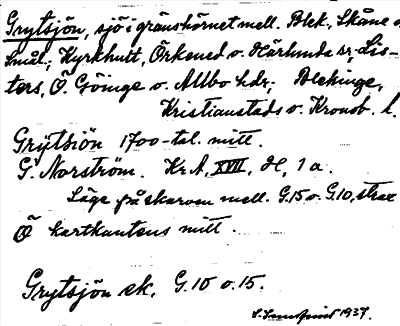 Grytsjön, sjö i gränshörnet mell. Blek., Skåne o.
Smål.; Kyrkhult, Örkened o. Härlunda sr; Lis-
ters, Ö. Göinge o. Allbo hdr; Blekinge,
Kristianstads o. Kronob. l.
Grytsiön 1700-tal. mitt.
G. Norström. KrA, XVIII, H, 1 a.
Läge på skarven mell. G. 15 o. G. 10, strax
Ö kartkantens mitt.
Grytsjön ek. G. 10 o. 15.
1937.